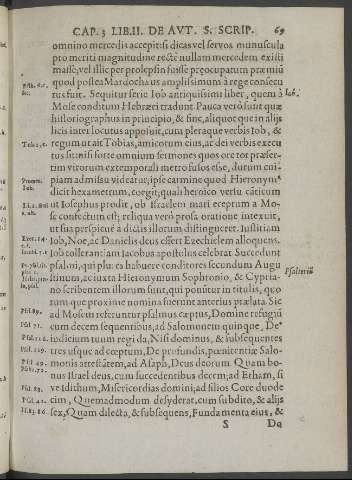 CAP. 3 LIB. II. DE AVT. S. SCRIP. 69
omnino mercedis accepit: si dicas vel servos munuscula
pro meriti magnitudine rectè nullam mercedem existi
masse; vel illic per prolepsin fuisse præocupatum præmiũ
quod postea Mardochæus amplissimum à rege consecu
tus fuit. Sequitur serie Iob antiquissimi liber, quem à Iob.
Mose conditum Hebræi tradunt. Pauca verò sunt quæ
historiographus in principio, & fine, aliquot que in alijs
licis inter locutus apposuit, cum pleraque verbis Iob, &
regum ut ait Tobias, amicorum eius, ac dei verbis execu
tus sit: nisi forte omnium sermones quos ore tot præser-
tim virorum extemporali metro fusos esse, durum cui-
piam admissu videatur; ipse carmine quod Hieronym⁹
dicit hexametrum, coegit; quali heroico versu cãticum
ut Iosephus prodit, ob Israelem mari ereptum a Mo-
se confectum est; reliqua verò prosa oratione intexuit,
ut sua perspicuè a dictis illorum distingueret. Iustitiam
Iob, Noe, ac Danielis deus effert Ezechielem alloquens.
Iob tollerantiam Iacobus apostolus celebrat. Succedunt
psalmi, qui plures habuere conditores secundum Augu Psalterium
stinum, ac iuxta Hieronymum Sophronio, & Cypria-
no scribentem illorum sunt, qui ponũtur in titulis, quo
rum que proxime nomina fuerunt anterius prælata. Sic
Psal. 89. ad Mosem referuntur psalmus cœptus, Domine refugiũ
Psal. 71. cum decem sequentibus, ad Salomonem quinque, De⁹
iudicium tuum regi da, Nisi dominus, & subsequentes
tres usque ad cœptum, De profundis, pœnitentiæ Salo-
monis attestãtem, ad Asaph, Deus deorum. Quam bo-
nus Israel deus, cum succedentibus decem; ad Etham, si
ve Idithum, Misericordias domini; ad filios Core duode
cim, Quemadmodum desyderat, cum subdito, & alijs
sex, Quam dilecta, & subsequens, Fundamenta eius, &
S Do